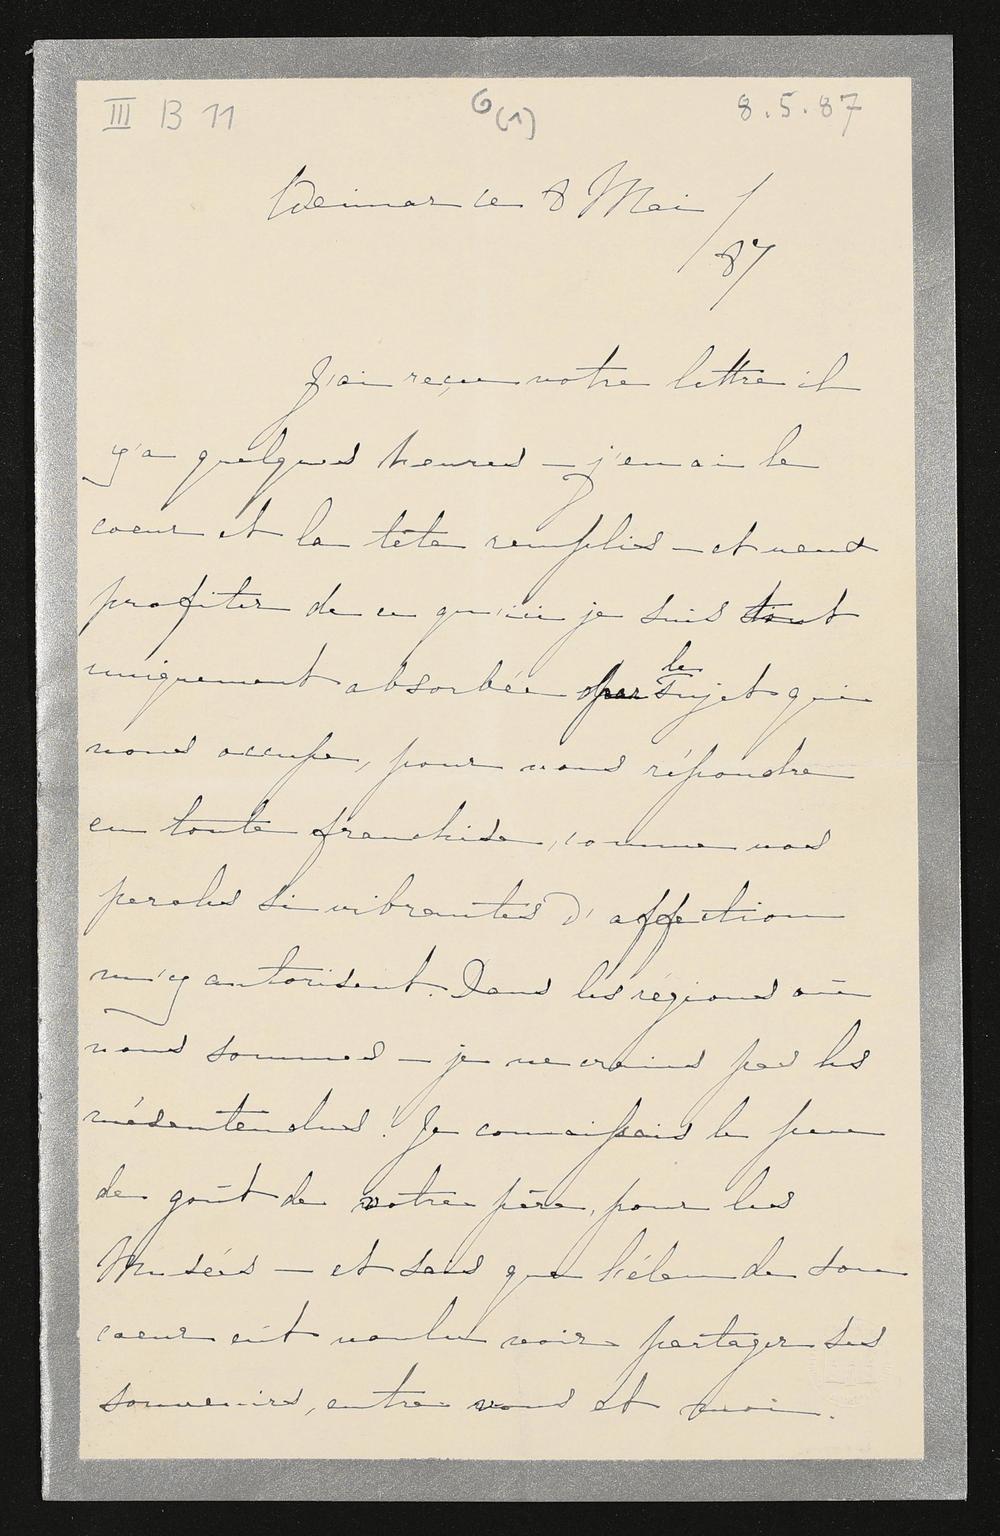 III B 11
6(1)
8.5.87
Weimar ce 8 Mai /
87
J'ai reçue votre lettre il
y'a quelques heures – j'en ai le
coeur et la tête remplis – et veux
profiter de ce qu'ici je suis tout
uniquement absorbée par le sujet qui
nous occupe, pour vous répondre
en toute franchise, comme vos
paroles si vibrantes d'affection
m'y autorisent. Dans les régions où
nous sommes – je ne crains pas les
mésentendus! Je connaissais le peu
de goût de votre père, pour les
Musées – et sais que l'élan de son
coeur eût voulu voir partager ses
souvenirs, entre vous et moi.